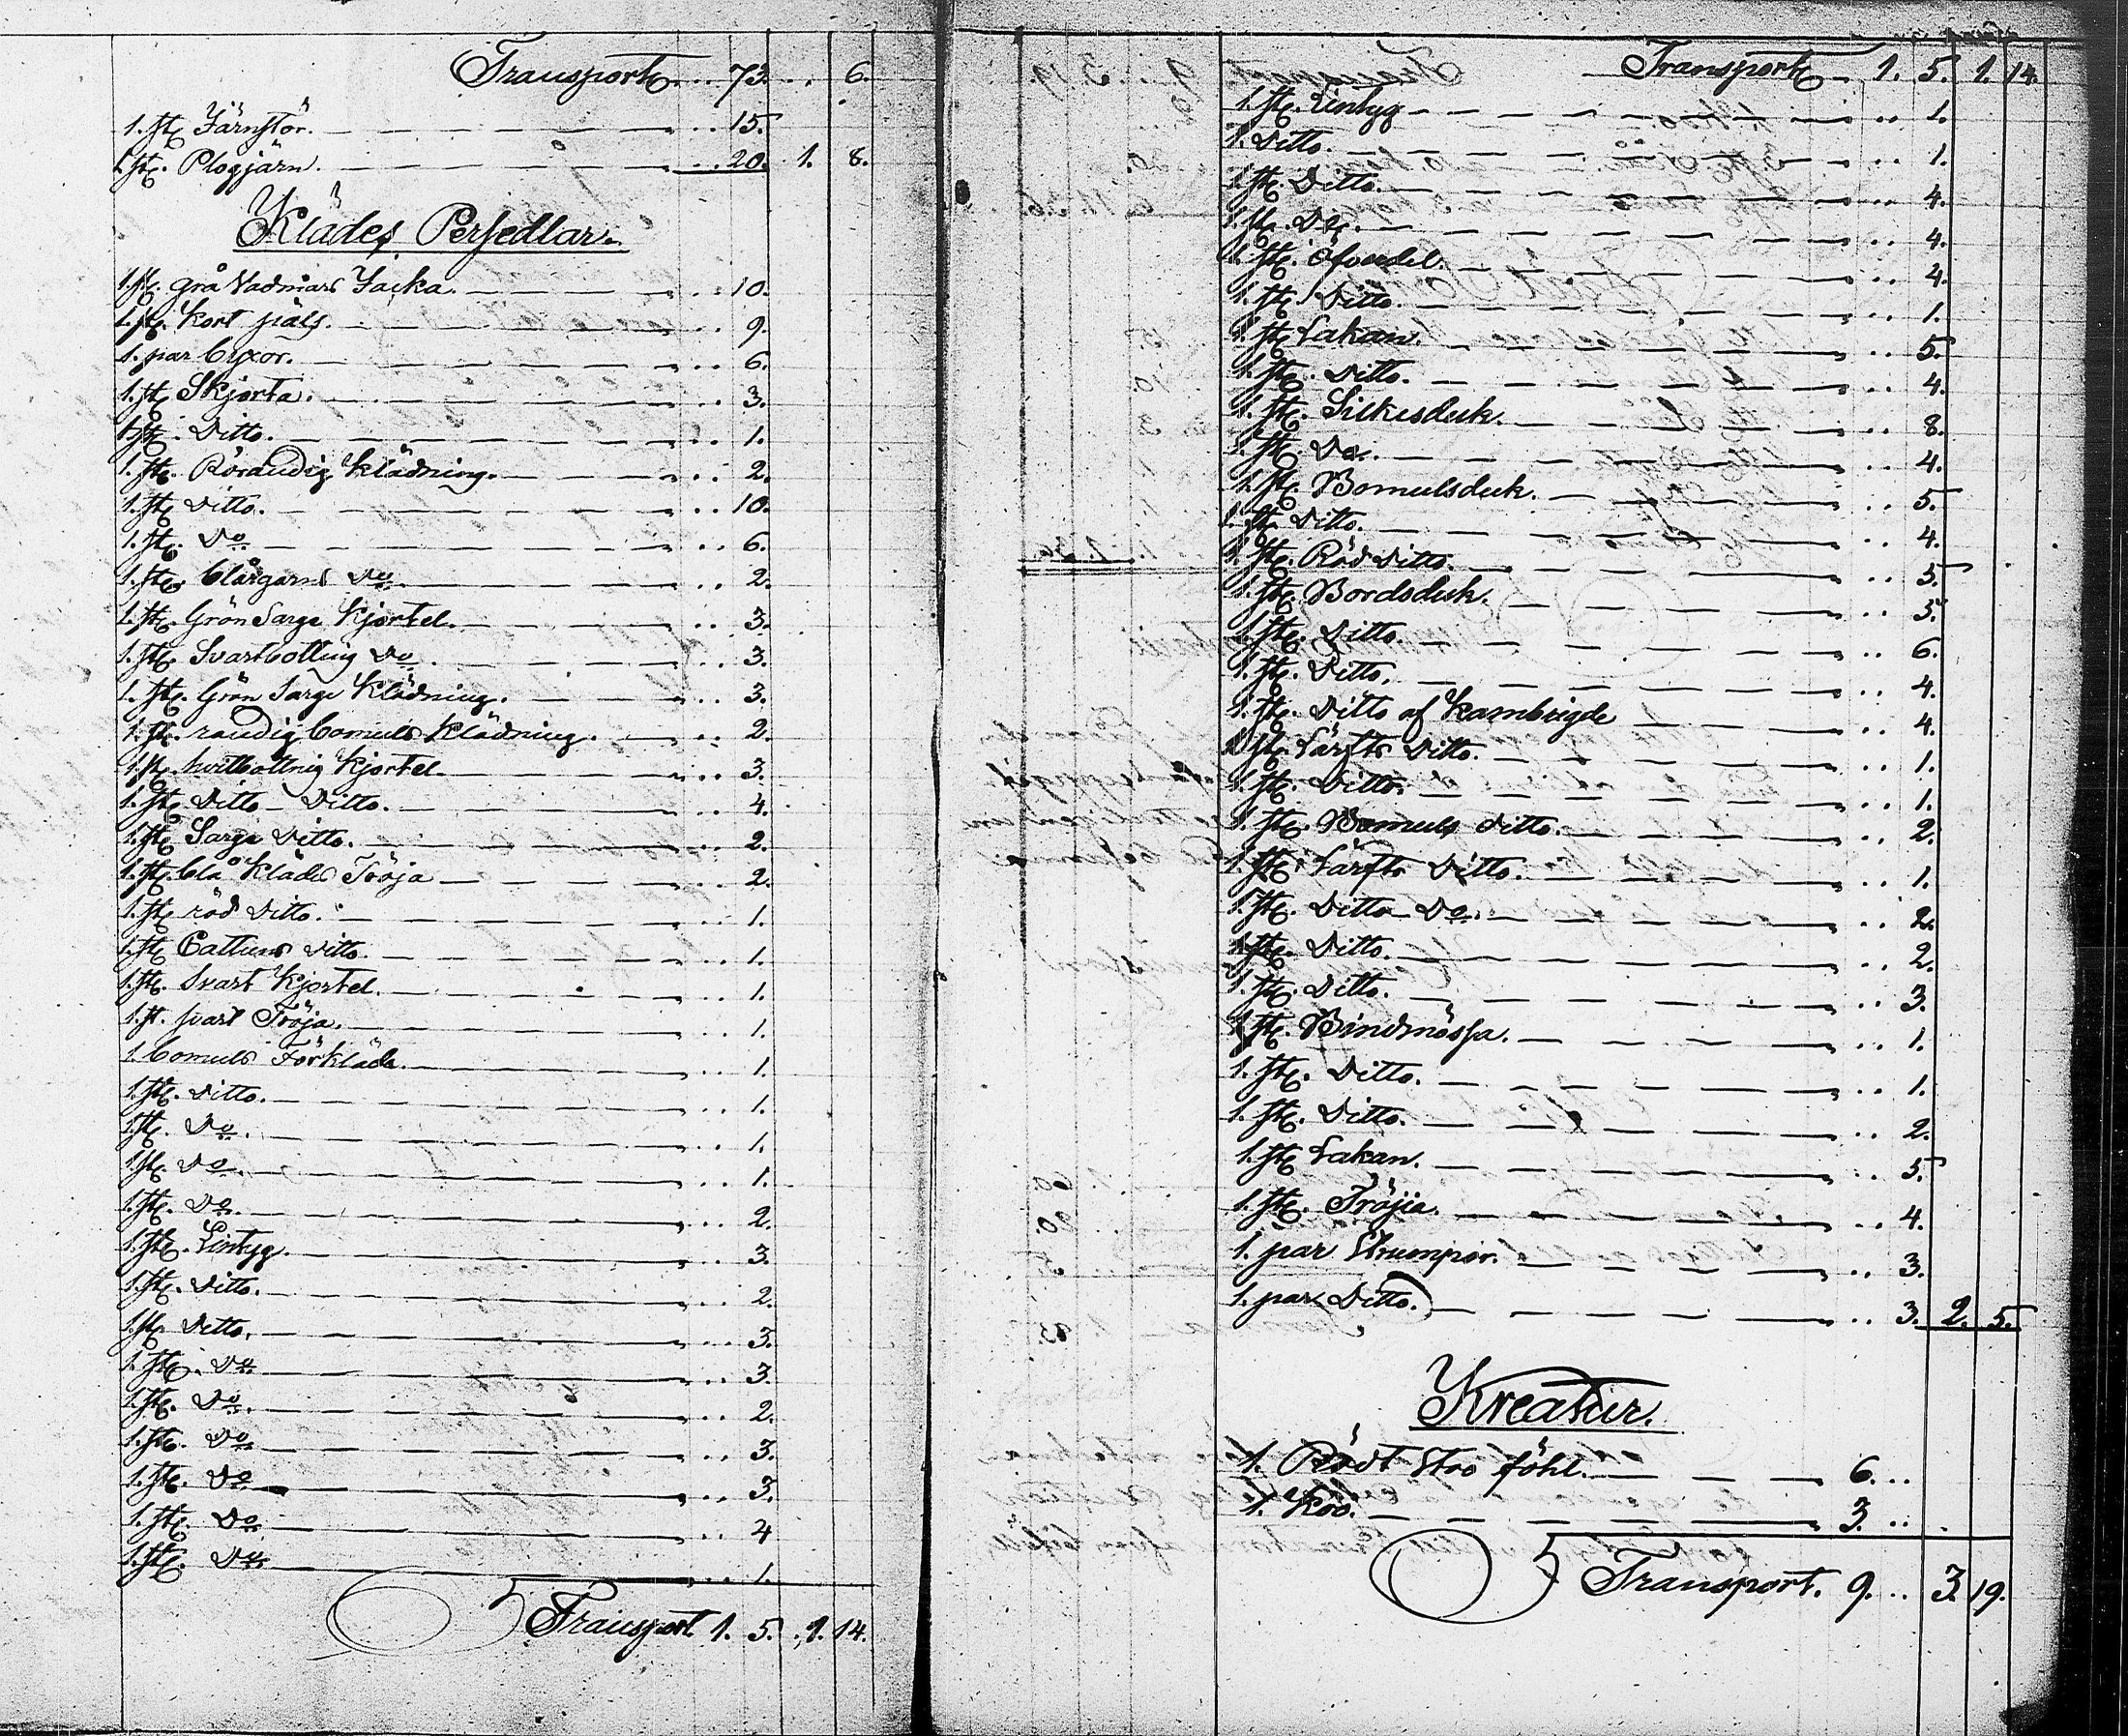 Transport 73. . 6.
1. st. Järnstör. 15.
1. st. Plogjärn. 20. 1. 8.
Klädes Persedlar.
1. st. grå Vadmars Jacka. 10.
1. st. Kort päls. 9.
1. par byxor. 6.
1. st. Skjorta. 3.
1. st. Ditto. 1.
1. st. Rörandig Klädning. 2.
1. st. Ditto. 10.
1. st. Do 6.
1. st. blårgarns Do 2.
1. st. Grön Sarge Kjortel. 3.
1. st. Svartbottnig Do 3.
1. st. Grön Sarge Klädning. 3.
1. st. randig bomuls Klädning. 2.
1. st. hvitbottnig Kjortel. 3.
1. st. Ditto Ditto. 4.
1. st. Sarge Ditto. 2.
1. st. blå Klädes Tröja 2.
1. st. röd Ditto. 1.
1. st. Cattuns Ditto. 1.
1. st. Svart Kjortel. 1.
1. st. svart Tröja. 1.
1. bomuls Förkläde. 1.
1. st. Ditto. 1.
1. st. Do. 1.
1. st. Do. 1.
1. st. Do. 2.
1. st. Lintyg. 3.
1. st. Ditto. 2.
1. st. Ditto. 3.
1. st. Do 3.
1. st. Do. 2.
1. st. Do 3.
1. st. Do 3.
1. st. Do 4
1. st. Do 1.
Transport 1. 5. 1. 14.
Transport 1. 5. 1. 14.
1. st. Lintyg 1.
1. Ditto. 1.
1. st. Ditto. 4.
1. st. Do. 4.
1. st. Öfverdel. 4.
1. st. Ditto. 1.
1. st. Lakan. 5.
1. st. Ditto. 4.
1. st. Silkesduk. 8.
1. st. Do. 4.
1. st. Bomulsduk. 5.
1. st. Ditto. 4.
1. st. Röd Ditto. 5.
1. st. Bordsduk. 3.
1. st. Ditto. 6.
1. st. Ditto. 4.
1. st. Ditto af Kambrigde 4.
1. st. Lärfts Ditto. 1.
1. st. Ditto. 1.
1. st. Bomuls Ditto. 2.
1. st. Lärfts Ditto. 1.
1. st. Ditto Do. 2.
1. st. Ditto. 2.
1. st. Ditto. 3.
1. st. Bindmössa. 1.
1. st. Ditto. 1.
1. st. Ditto. 2.
1. st. Lakan. 5.
1. st. Tröjia. 4.
1. par Strumpor. 3.
1. par Ditto. 3. 2. 5.
Kreatur.
1. Rödt Sto föhl. 6.
1. Koo. 3.
Transport. 9. 3. 19.